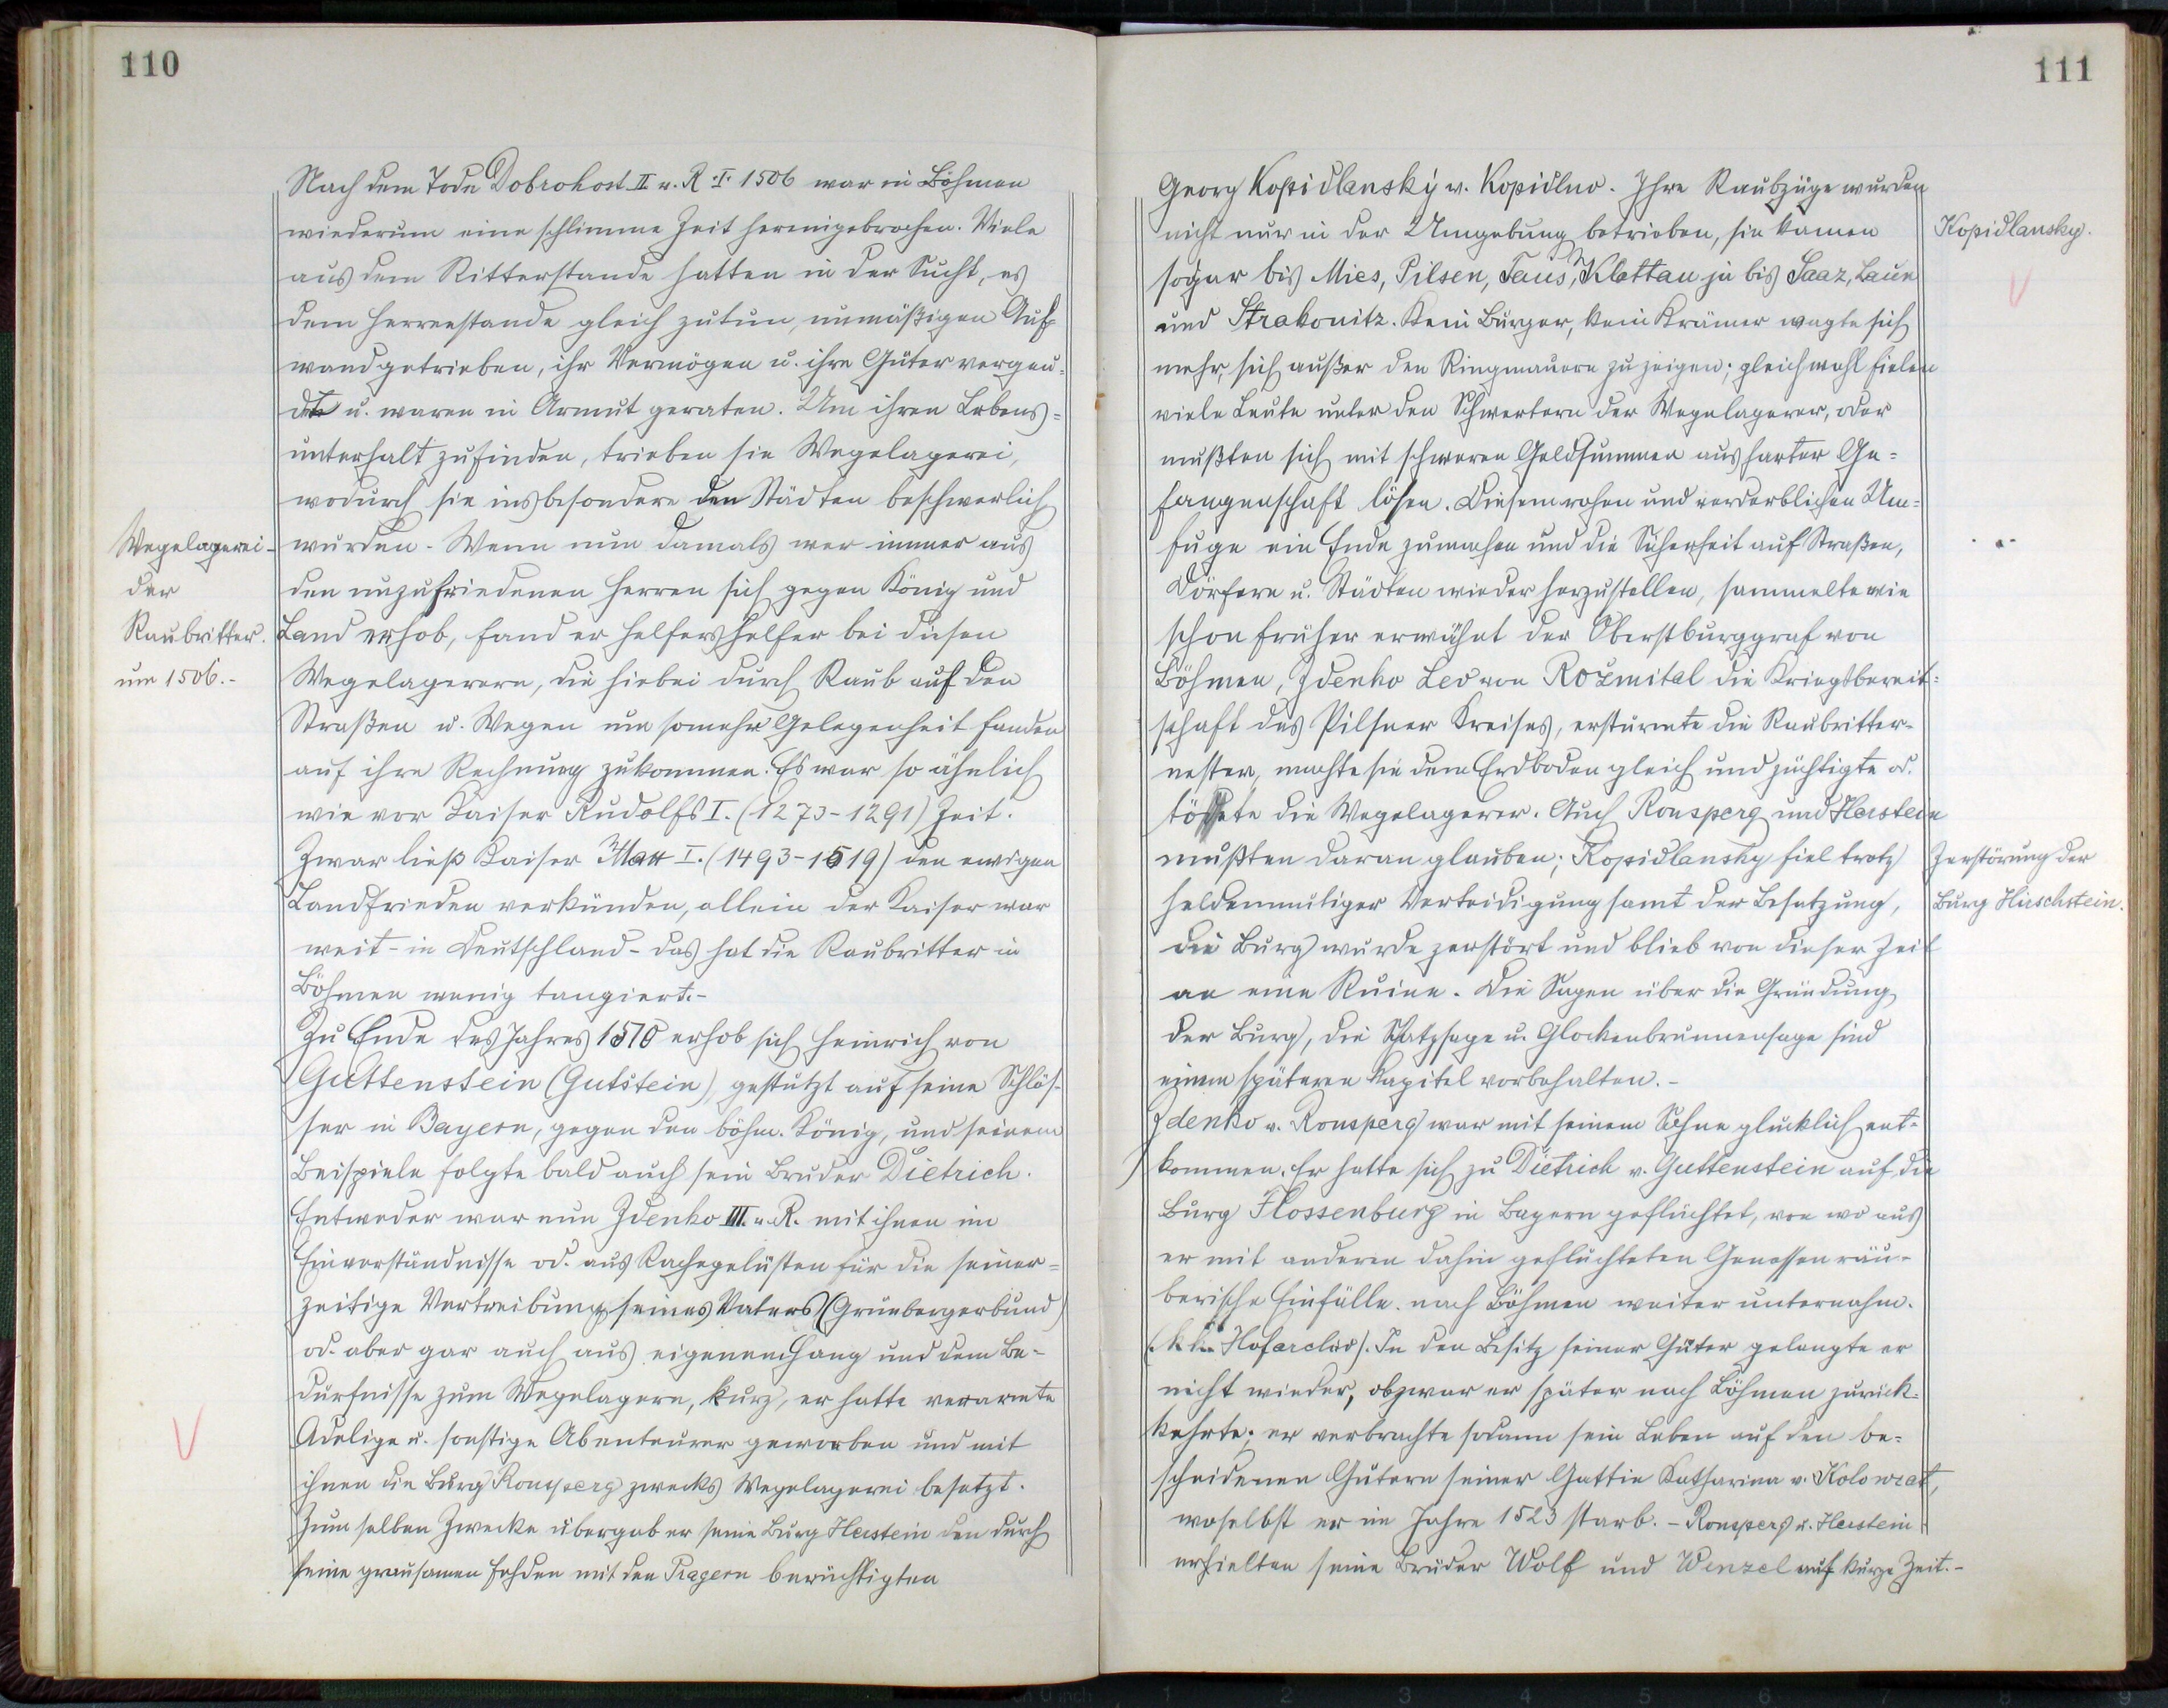 110
Nach dem Tode Dobrohost II v. R. I. 1506 war in Böhmen
wiederum eine schlimme Zeit hereingebrochen. Viele
aus dem Ritterstande hatten in der Sucht, es
dem Herrenstande gleich zutun, unmäßigen Auf-
wand getrieben, ihr Vermögen u. ihre Güter vergeu-
det u. waren in Armut geraten. Um ihren Lebens-
unterhalt zu finden, trieben sie Wegelagerei,
wodurch sie insbesondere den Städten beschwerlich
Wegelagerei
der
Raubritter.
um 1506.-
wurden. Wenn nun damals wer immer aus
den unzufriedenen Herren sich gegen König und
Land erhob, fand er Helfershelfer bei diesen
Wegelagerern, die hiebei durch Raub auf den
Straßen u. Wegen um somehr Gelegenheit fanden
auf ihre Rechnung zukommen. Es war so ähnlich
wie vor Kaiser Rudolfs I. (1273-1291) Zeit.
Zwar ließ Kaiser Max I. (1493-1519) den ewigen
Landfrieden verkünden, allein der Kaiser war
weit - in Deutschland - das hat die Raubritter in
Böhmen wenig tangiert.-
Zu Ende des Jahres 1510 erhob sich Heinrich von
Guttenstein (Gutštein), gestützt auf seine Schlös-
ser in Bayern, gegen den böhm. König, und seinem
Beispiele folgte bald auch sein Bruder Dietrich.
Entweder war nun Zdenko III. v. R. mit ihnen im
Einverständnisse od. aus Rachegelüsten für die seiner-
zeitige Vertreibung seines Vaters (Grünbergerbund)
od. aber gar auch aus eigenem Hang und dem Be-
dürfnisse zum Wegelagern, kurz, er hatte verarmte
Adelige u. sonstige Abenteurer geworben und mit
ihnen die Burg Ronsperg zwecks Wegelagerei besetzt.
Zum selben Zwecke übergab er seine Burg Herstein den durch
seine grausamen Fehden mit den Pragern berüchtigten
111
Georg Kopidlanský v. Kopidlno. Ihre Raubzüge wurden
nicht nur in der Umgebung betrieben, sie kamen
Kopidlansky.
sogar bis Mies, Pilsen, Taus, Klattau ja bis Saaz, Laun
und Strakonitz. Kein Bürger, kein Krämer wagte sich
mehr, sich außer den Ringmauern zu zeigen; gleichwohl fielen
viele Leute unter den Schwertern der Wegelagerer, oder
mußten sich mit schweren Geldsummen aus harter Ge-
fangenschaft lösen. Diesem rohen und verderblichen Un-
fuge ein Ende zumachen und die Sicherheit auf Straßen,
Dörfern u. Städten wieder herzustellen, sammelte wie
schon früher erwähnt der Oberstburggraf von
Böhmen, Zdenko Lev von Rožmital die Kriegsbereit-
schaft des Pilsner Kreises, erstürmte die Raubritter-
nester, machte sie dem Erdboden gleich und züchtigte od.
tötete die Wegelagerer. Auch Ronsperg und Herstein
mußten daran glauben; Kopidlansky fiel trotz
Zerstörung der
Burg Hirschstein.
heldenmütiger Verteidigung samt der Besatzung,
die Burg wurde zerstört und blieb von dieser Zeit
an eine Ruine. Die Sagen über die Gründung
der Burg, die Schatzsage u. Glockenbrunnensage sind
einem späteren Kapitel vorbehalten.-
Zdenko v. Ronsperg war mit seinem Sohne glücklich ent-
kommen. Er hatte sich zu Dietrich v. Guttenstein auf die
Burg Flossenburg in Bayern geflüchtet, von wo aus
er mit anderen dahin geflüchteten Genossen räu-
berische Einfälle nach Böhmen weiter unternahm.
(k. k. Hofarchiv). In den Besitz seiner Güter gelangte er
nicht wieder, obzwar er später nach Böhmen zurück-
kehrte; er verbrachte sodann sein Leben auf den be-
scheidenen Gütern seiner Gattin Katharina v. Kolowrat,
woselbst er im Jahre 1523 starb. - Ronsperg u. Herstein
erhielten seine Brüder Wolf und Wenzel auf kurze Zeit.-